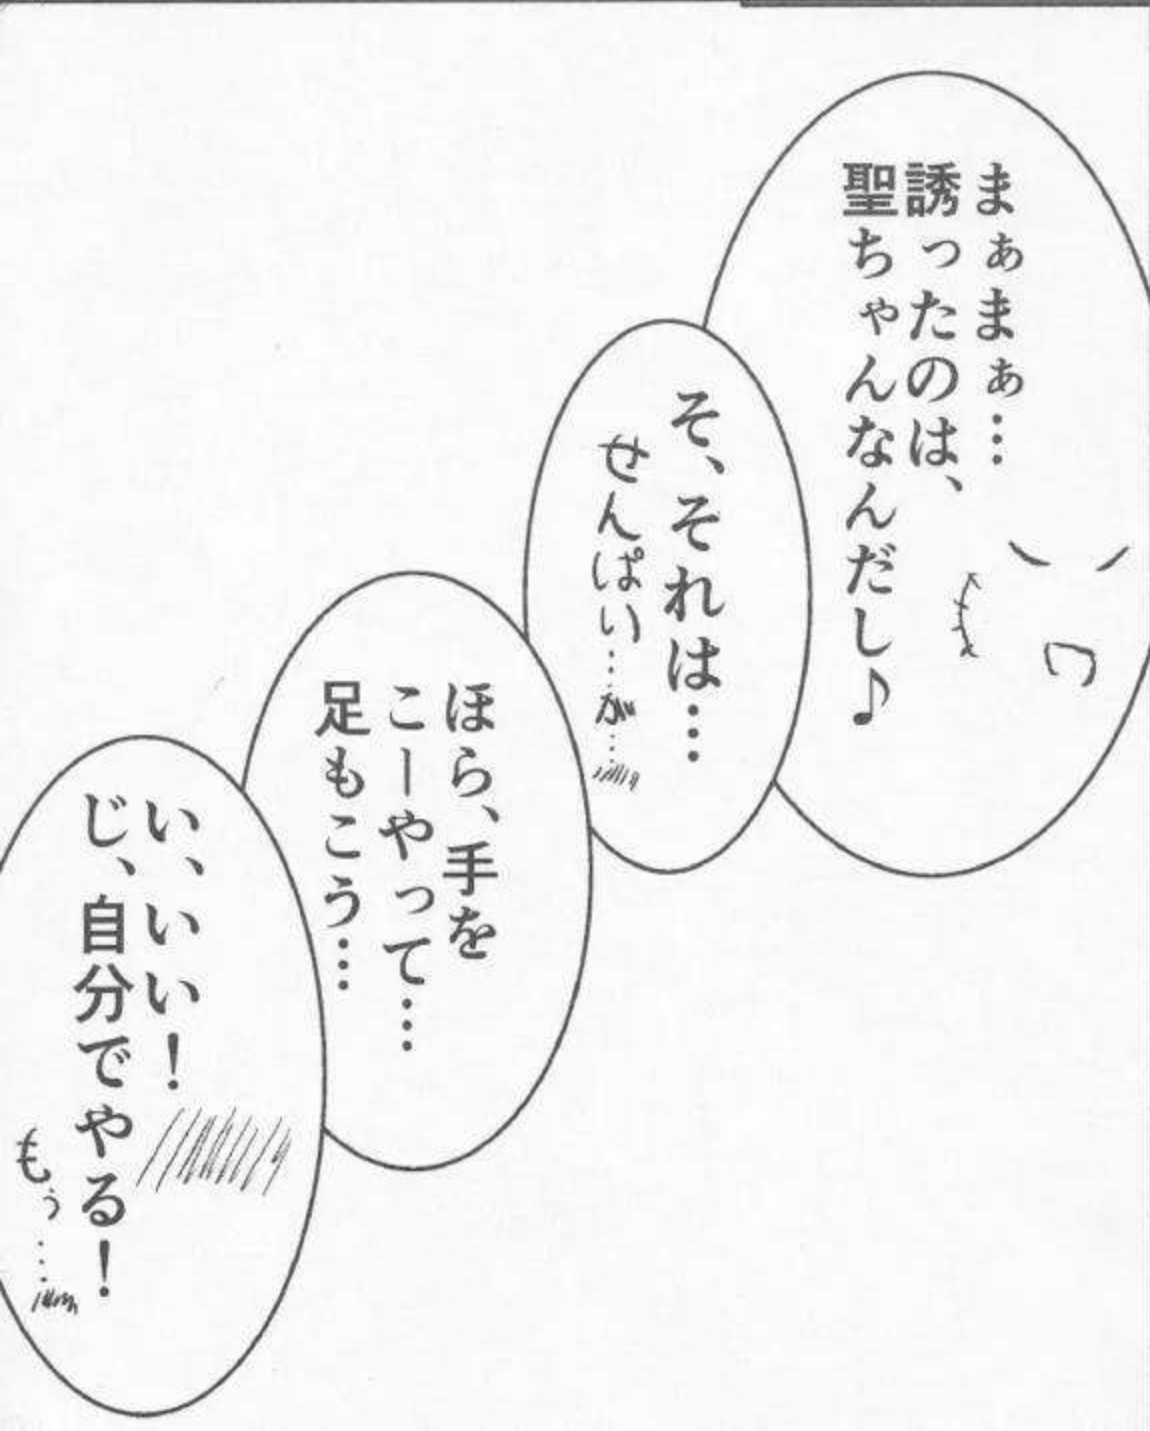 まぁまぁ…
誘ったのは、
聖ちゃんなんだし♪
そ、それは…
せんぱい……が……
ほら、手を
こーやって…
足もこう…
い、いい！
じ、自分でやる！
もぅ……